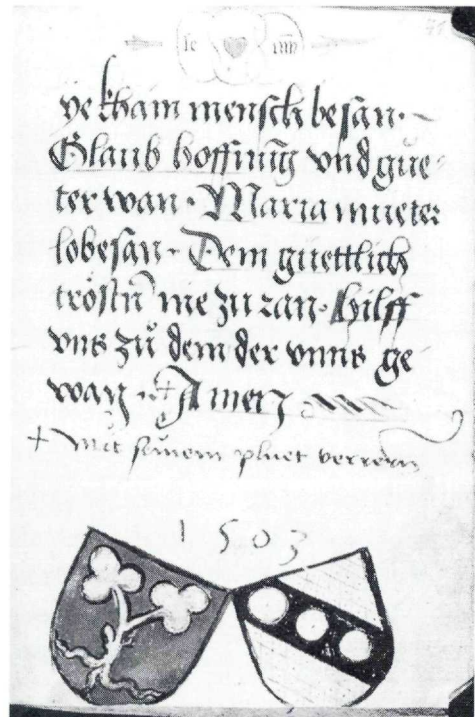 ye kham mensch besan ·
Glaub hoffnung vnd gue-
ter wan · Maria mueter
lobesan · Dem guettlich
tröstn nie zu ran · hilff
vns zů dem der vnns ge-
wan · Amen
+ mit seinem pluet verrern
1503